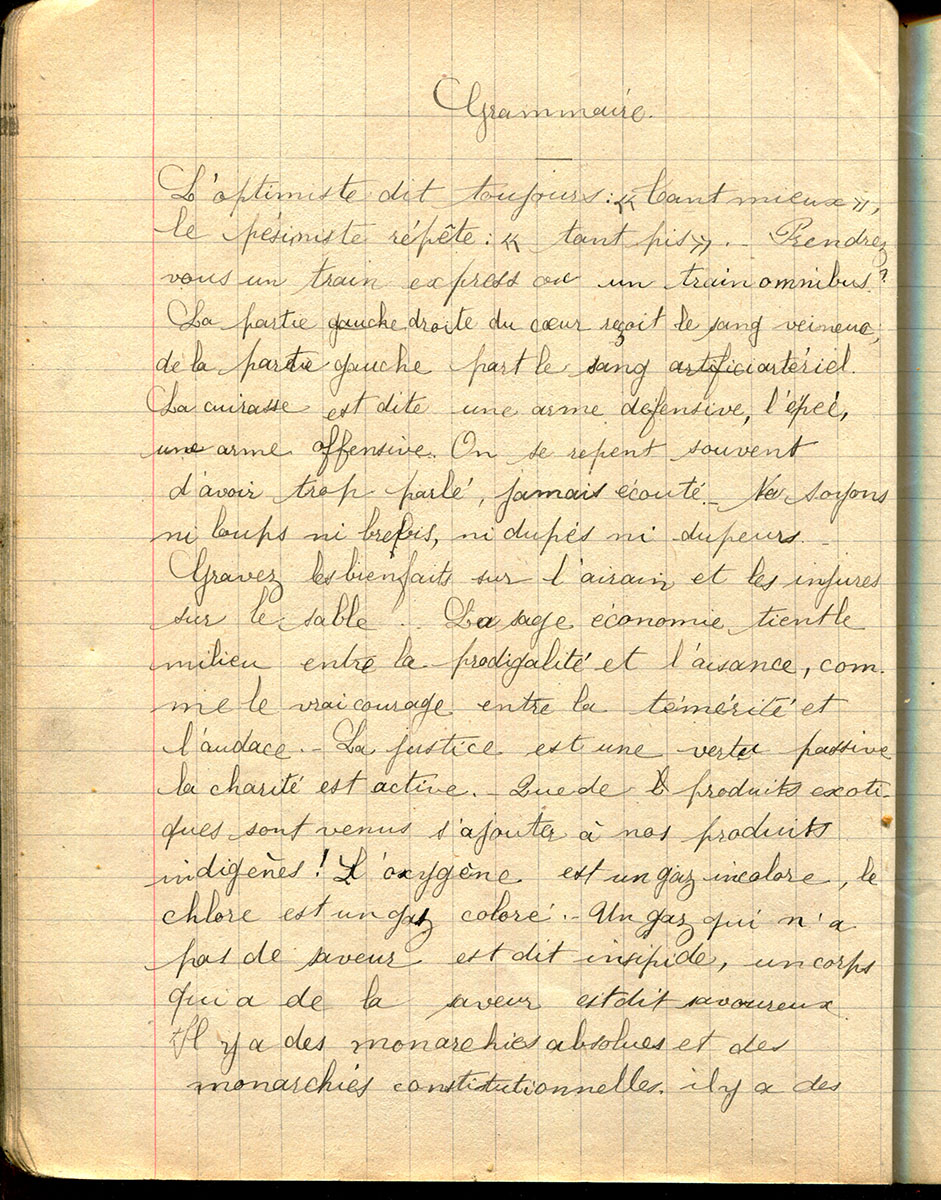 Grammaire.
L'optimiste dit toujours : « tant mieux »,
le pésimiste répête : « tant pis ». - Prendrez
vous un train express ou un train omnibus ?
La partie gauche droite du cœur reçoit le sang veineux,
de la partie gauche part le sang artificiartériel.
La cuirasse est dite une arme défensive, l'épeé,
une arme offensive. On se repent souvent
d'avoir trop parlé, jamais écouté. - Ne soyons
ni loups ni brebis, ni dupés ni dupeurs. -
Gravez les bienfaits sur l'airain et les injures
sur le sable . - La sage économie tient le
milieu entre la prodigalité et l'aisance, com-
me le vrai courage entre la témérité et
l'audace. - La justice est une vertu passive
la charité est active. - Que de produits exoti-
ques sont venus s'ajouter à nos produits
indigènes ! L'oxygène est un gaz incolore, le
chlore est un gaz coloré. - Un gaz qui n'a
pas de saveur est dit insipide, un corps
qui a de la saveur est dit savoureux
Il y a des monarchies absolues et des
monarchies constitutionnelles. il y a des